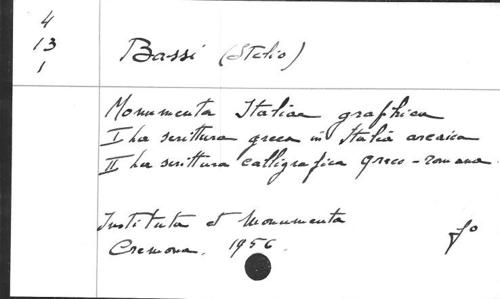 4
13
1
Bassi (Stelio)
Monumenta Italiae graphica
I La scrittura greca in Italia arcaica
II La scrittura calligrafica greco-romana.
Instituta et Monumenta
Cremona. 1956.
fo